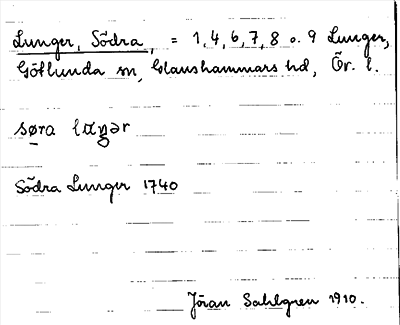 Lunger, Södra, = 1, 4, 6, 7, 8 o. 9 Lunger,
Götlunda sn, Glanshammars hd, Ör. l.
søra lɯŋər
Södra Lunger 1740
Jöran Sahlgren 1910.